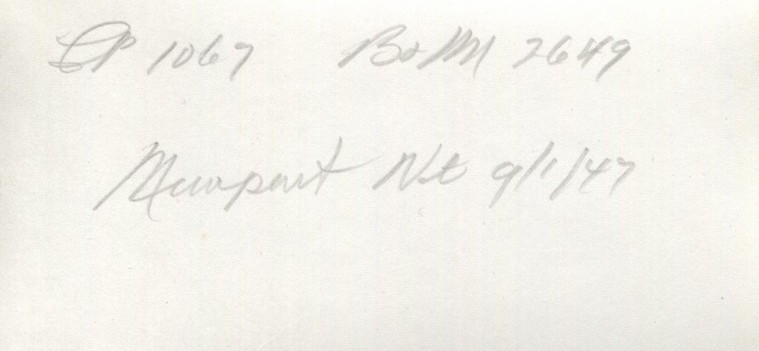 CP 1067 B&M 2649
Newport Vt 9/1/47